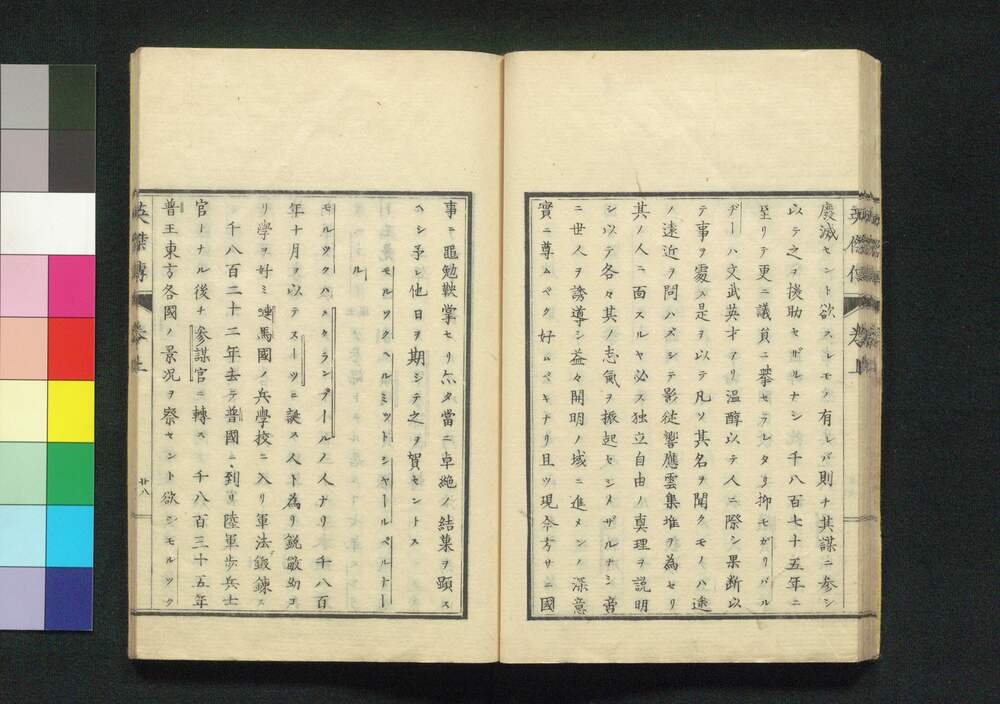 廢滅セント欲スレモノ有レバ則チ其謀ニ参シ
以テ之ヲ援助セザルナシ千八百七十五年ニ
至リテ更ニ議員ニ擧セラレタリ抑モガリバル
ヂーハ文武英才アリ温醇以テ人ニ際シ果断以
テ事ヲ處ス是ヲ以テ凡ソ其名ヲ聞クモノハ途
ノ遠近ヲ問ハズシテ影従響應雲集堆ヲ為セリ
其ノ人ニ面スルヤ必ス独立自由ノ真理ヲ説明
シ以テ各々其ノ志氣ヲ振起セシメザルナシ啻
ニ世人ヲ誘導シ益々開明ノ域ニ進メンノ深意
實ニ尊ムベク好ムベキナリ且ツ現今方サニ國
英傑傳 巻上
事ニ黽勉鞅掌セリ亦タ當ニ卓絶ノ結菓ヲ顕ス
ベシ予レ他日ヲ期シテ之ヲ賀セントス
モルツクヘルミットシャールベルナー
ル
モルツクハメクランブールノ人ナリ千八百
年十月ヲ以テスーツニ誕ス人ト為リ鋭敏幼ヨ
リ学ヲ好ミ嗹馬國ノ兵學校ニ入リ軍法鍛錬ス
千八百二十二年去テ普國ニ到リ陸軍歩兵士
官トナル後チ参謀官ニ轉ス千八百三十五年
普王東方各國ノ景况ヲ察セント欲シモルツク
英傑傳 巻上 廿八